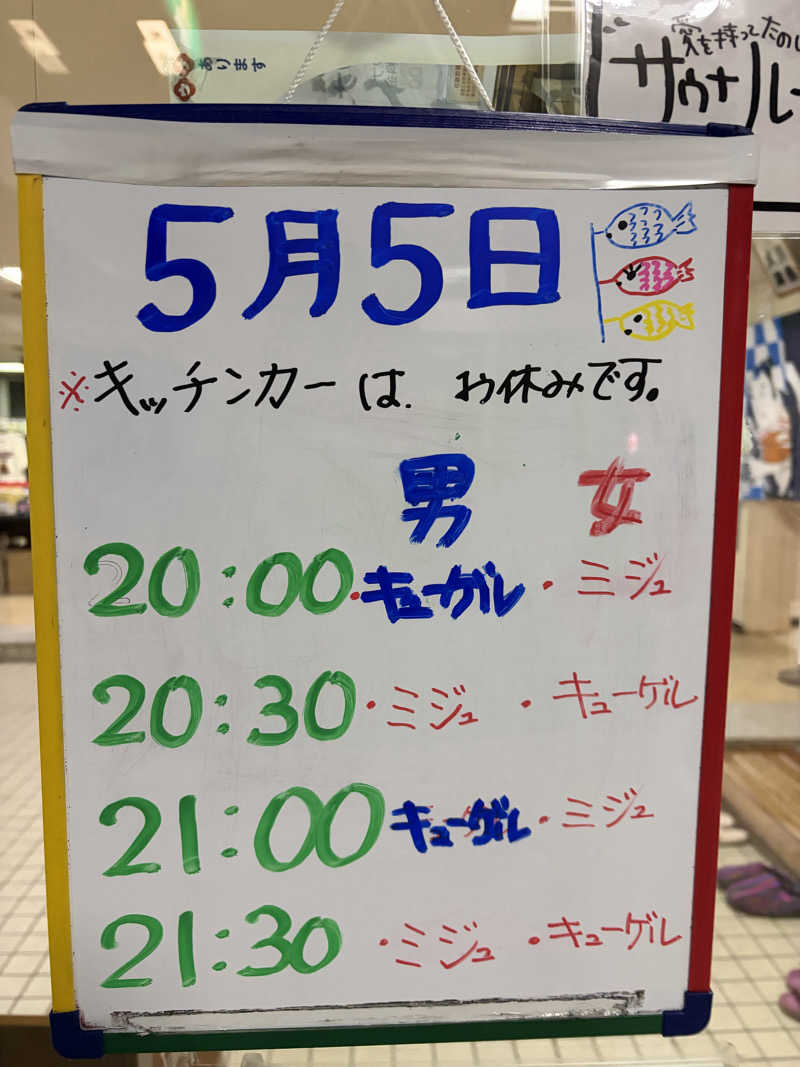 あります
愛を持ってたのし
サウナルー
5月5日
※キッチンカーは、お休みです。
男 女
20:00・キューゲル・ミジュ
20:30・ミジュ・キューゲル
21:00 キューゲル・ミジュ
21:30・ミジュ・キューゲル